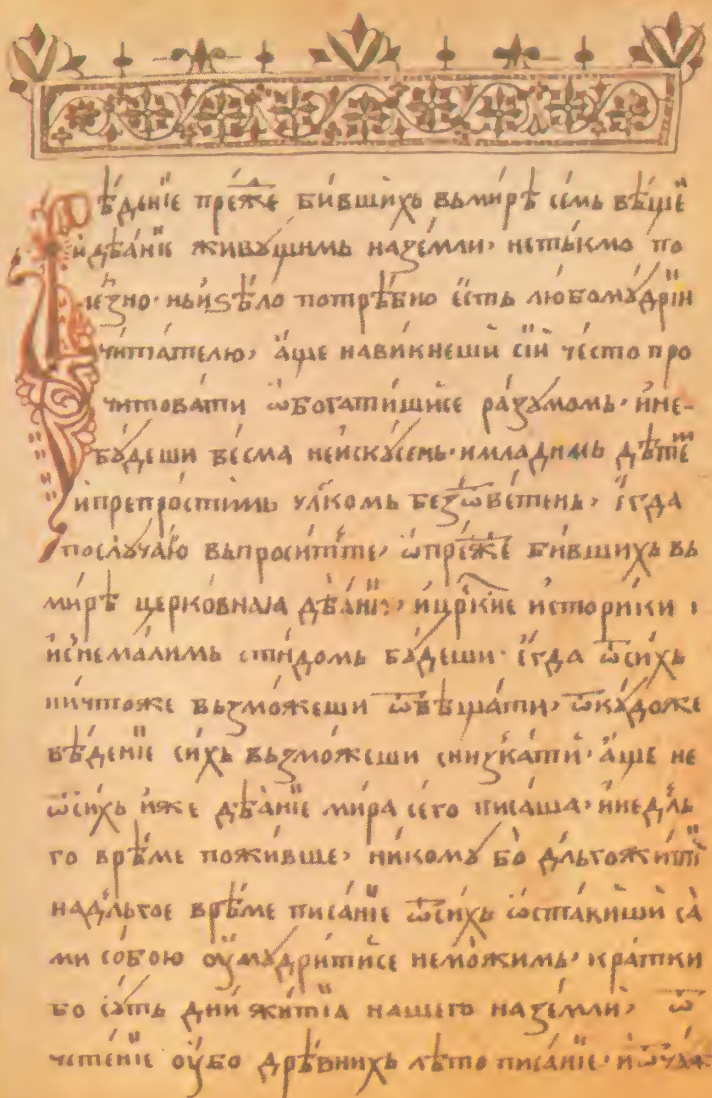 Вѣденїе прѐже бившихь вьмирѣ семь вѣщей
и дѣанїе живꙋщимь наземли, нетькмо по
лезно. ньиѕѣло потрѣбно ѥсть любомꙋдрїи
читателю, аще навикнеши сїй често про
читовати ѡбогатишисе разꙋмомь. ине-
бꙋдеши весма неискꙋсень. имладимь дѣтем
ипрепростимь члкомь безѿветень, егда
послꙋчаю вьпросите, ѡпреже бившихь вь
мирѣ церковнаꙗ дѣанїꙗ, ицркїе историки,
иснемалимь стидомь бꙋдеши. егда ѿсихь
ничтоже вьзможеши ѿвѣщати, ѿкꙋдоже
вѣденїе сихь вьзможеши снизкати. аще не
ѿсихь иже дѣанїе мира сего писаша. инедль
го врѣме поживше, никомꙋ бо дльгожитїе
надльгое врѣме писанїе ѿсихь ѡставиши са
ми собою оумꙋдритисе неможимь, кратки
бо сꙋть дни житїа нашего наземли, ѿ
четенїе оубо дрѣвнихь лѣто писанїе.